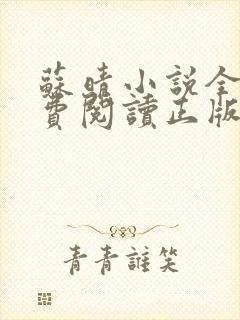 蘇晴小說全
費閱讀正版
青青誰笑